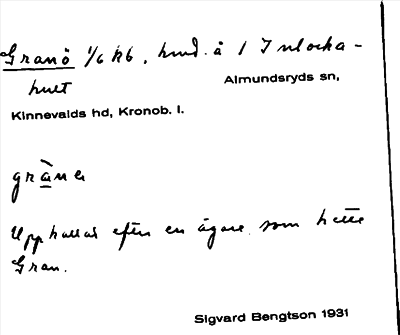 Granö 1/6 kb, hmd. å
Almundsryds sn,
Kinnevalds hd, Kronob. l.
gràna
Uppkallad efter en ägare som hette
Gran.
Sigvard Bengtson 1931